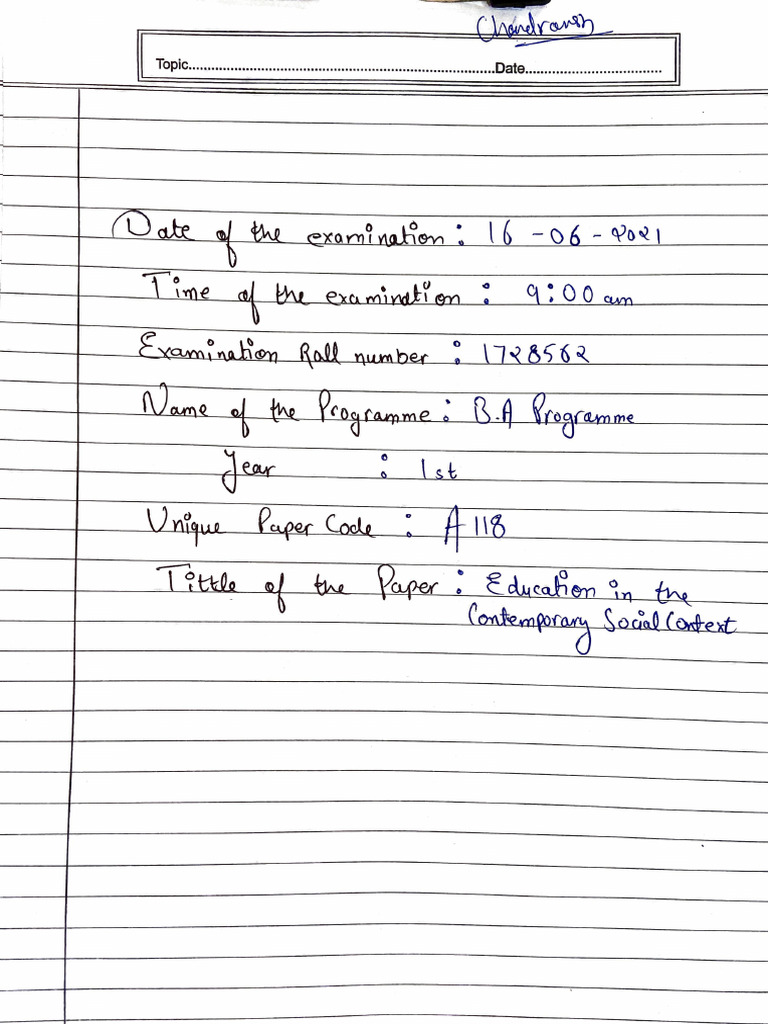 Chandransh
Topic......................................................................................Date.......................................
Date of the examination : 16 - 06 - 2021
Time of the examination : 9:00 am
Examination Roll number : 1728562
Name of the Programme : B.A Programme
Year : 1st
Unique Paper Code : A 118
Tittle of the Paper : Education in the
Contemporary Social Context